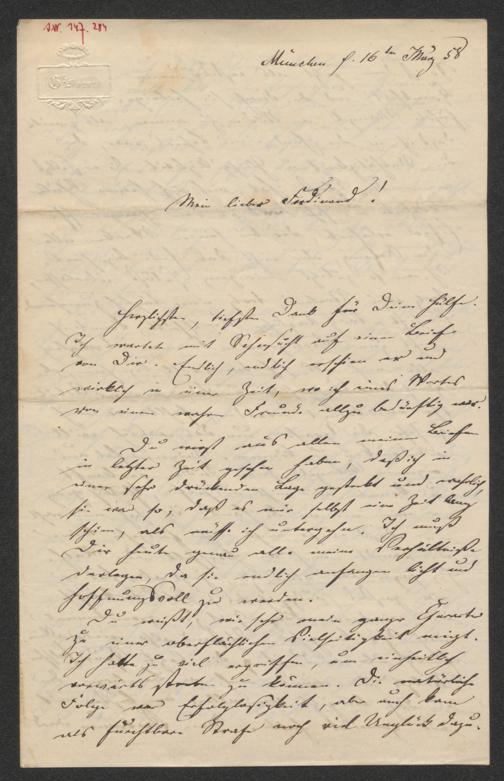 A.N. 147. 284
München d. 16ten März 58
Mein lieber Ferdinand!
Herzlichsten, tiefsten Dank für Deine Hülfe.
Ich wartete mit Sehnsucht auf einen Brief
von Dir. Endlich, endlich erschien er und
wirklich in einer Zeit, wo ich eines Wortes
von einem wahren Freunde allzu bedürftig war.
Du wirst aus allen meinen Briefen
in letzter Zeit gesehen haben, daß ich in
einer sehr drückenden Lage gesteckt und wahrlich,
sie war so, daß es mir selbst eine Zeit lang
schien, als müßte ich untergehn. Ich muß
Dir heute genau alle meine Verhältniße
darlegen, da sie endlich anfangen licht und
hoffnungsvoll zu werden.
Du weißt, wie sehr mein ganzer Charakter
zu einer oberflächlichen Vielseitigkeit neigt.
Ich hatte zu viel ergriffen, um einheitlich
vorwärts streben zu können. Die natürliche
Folge war Erfolglosigkeit, aber auch kam
als furchtbare Strafe noch viel Unglück dazu.